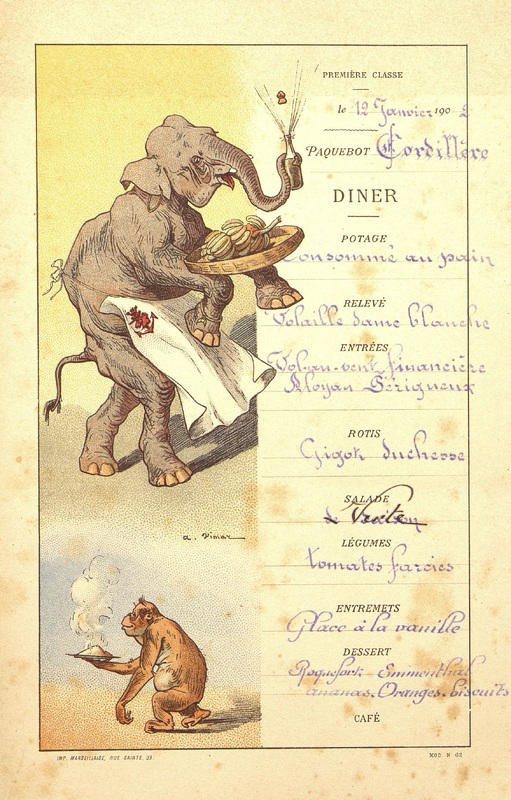 PREMIÈRE CLASSE
le 12 Janvier 190
PAQUEBOT Cordillère
DINER
POTAGE
Consommé au pain
RELEVÉ
Volaille dame blanche
ENTRÉES
Vol-au-vent financière
Aloyau Périgueux
ROTIS
Gigot duchesse
SALADE
Verte
LÉGUMES
tomates farcies
ENTREMETS
Glace à la vanille
DESSERT
Roquefort Emmenthal
ananas. Oranges. biscuits
CAFÉ
a. Vimar
IMP. MARSEILLAISE, RUE SAINTE, 39.
MOD. N 62